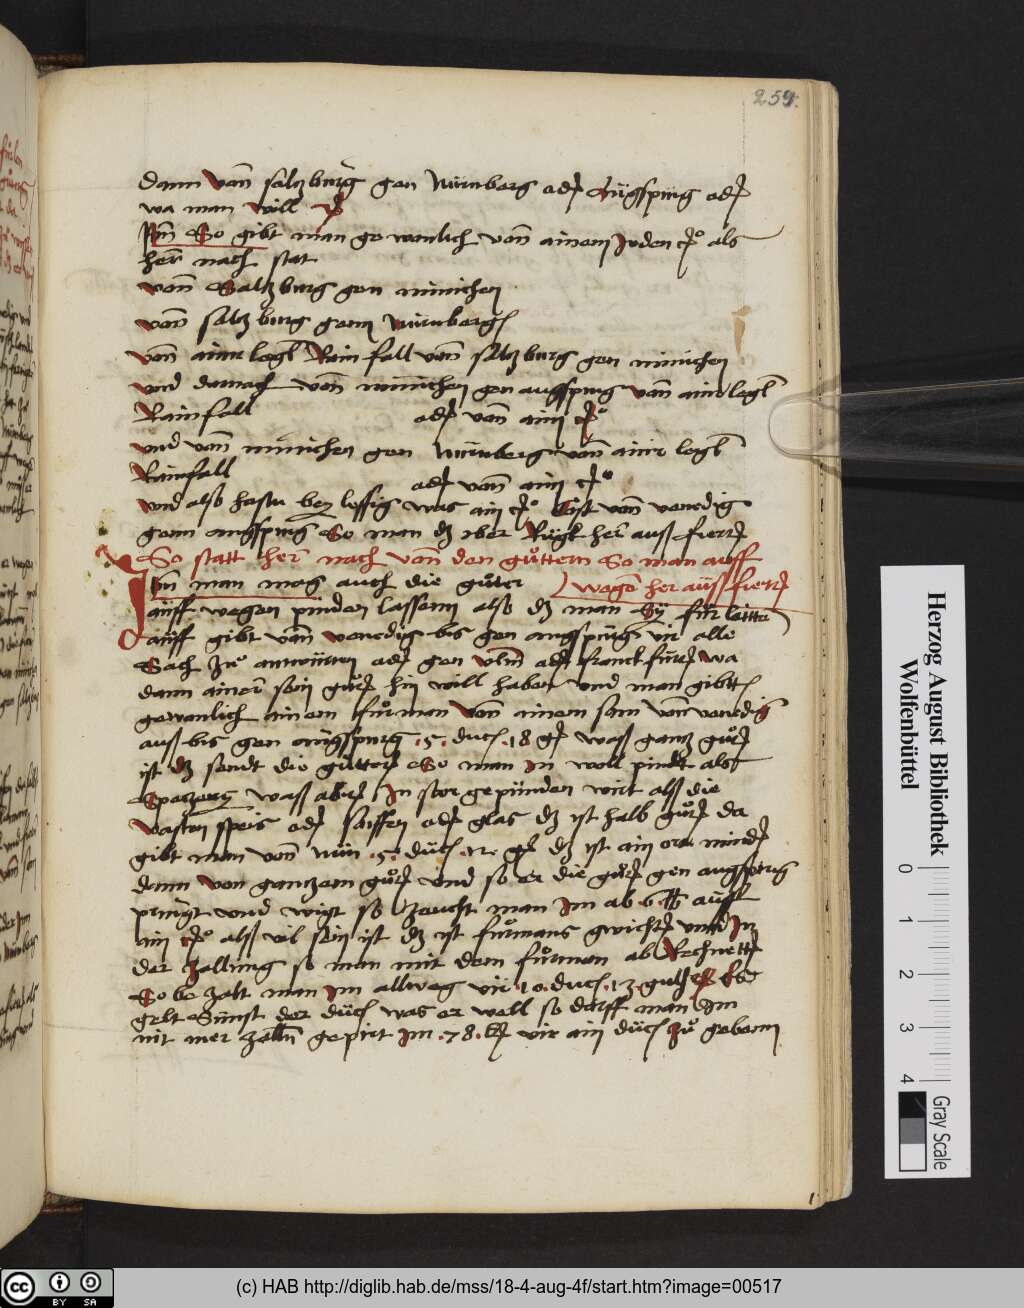 259.
dann von saltzburg gen Nürnberg oder Augspurg oder
wa man will
Itm So gibt man gewonlich von ainem Juden cto als
her nach stat
von Saltzburg gen münichen
von saltzburg genn Nürnberg
von ainer legl Rainfall von saltzburg gen münichen
und darnach von münichen gen augspurg von ainer legl
Rainfall oder von aim cto
und von münichen gen Nürnberg von ainer legl
Rainfall oder von aim cto
und also hastu bey leffig was ain cto Cost von venedig
genn augspurg So man dz uber Rugk her auss fiert
So statt her nach von den güttern So man auff
wegen her auss fiert
Itm man mag auch die güter
auff wegen pinden lassenn also dz man Sy für leitte
auff gibt von venedig bis gen augspurg vir alle
Sach zu antwürten oder gen ulm oder franckfurt wa
dann ainer sein gut hin will haben und man gibtt
gewonlich ainem furman von ainem sam von venedig
auss bis gen augspurg .5. duc .18 gr wass gantz gut
ist dz sendt die gütter So man in woll pindt als
Spetzerey wass aber In stor gepunden wirt alss die
vasten speis oder saiffen oder glas dz ist halb gut da
gibt man von nün .5. duc .12. gr dz ist ain ort minder
dann von gantzem gut und so er die gut gen augspurg
pringt und wigt so zeucht man Im ab .6 lb auff
ain cto alss vil sein ist dz ist furmans gwicht und In
der zallung so man mit dem furman ab Rechnett
So bezalt man Im allweg vir .10. duc .13. gulden
gelt Sunst der duc was er well so darff man Im
nit mer zalln gepirt Im .78. vir ain duc zu gebenn
Herzog August Bibliothek
Wolfenbüttel
0 1 2 3 4
Gray Scale
cc BY SA
(c) HAB http://diglib.hab.de/mss/18-4-aug-4f/start.htm?image=00517